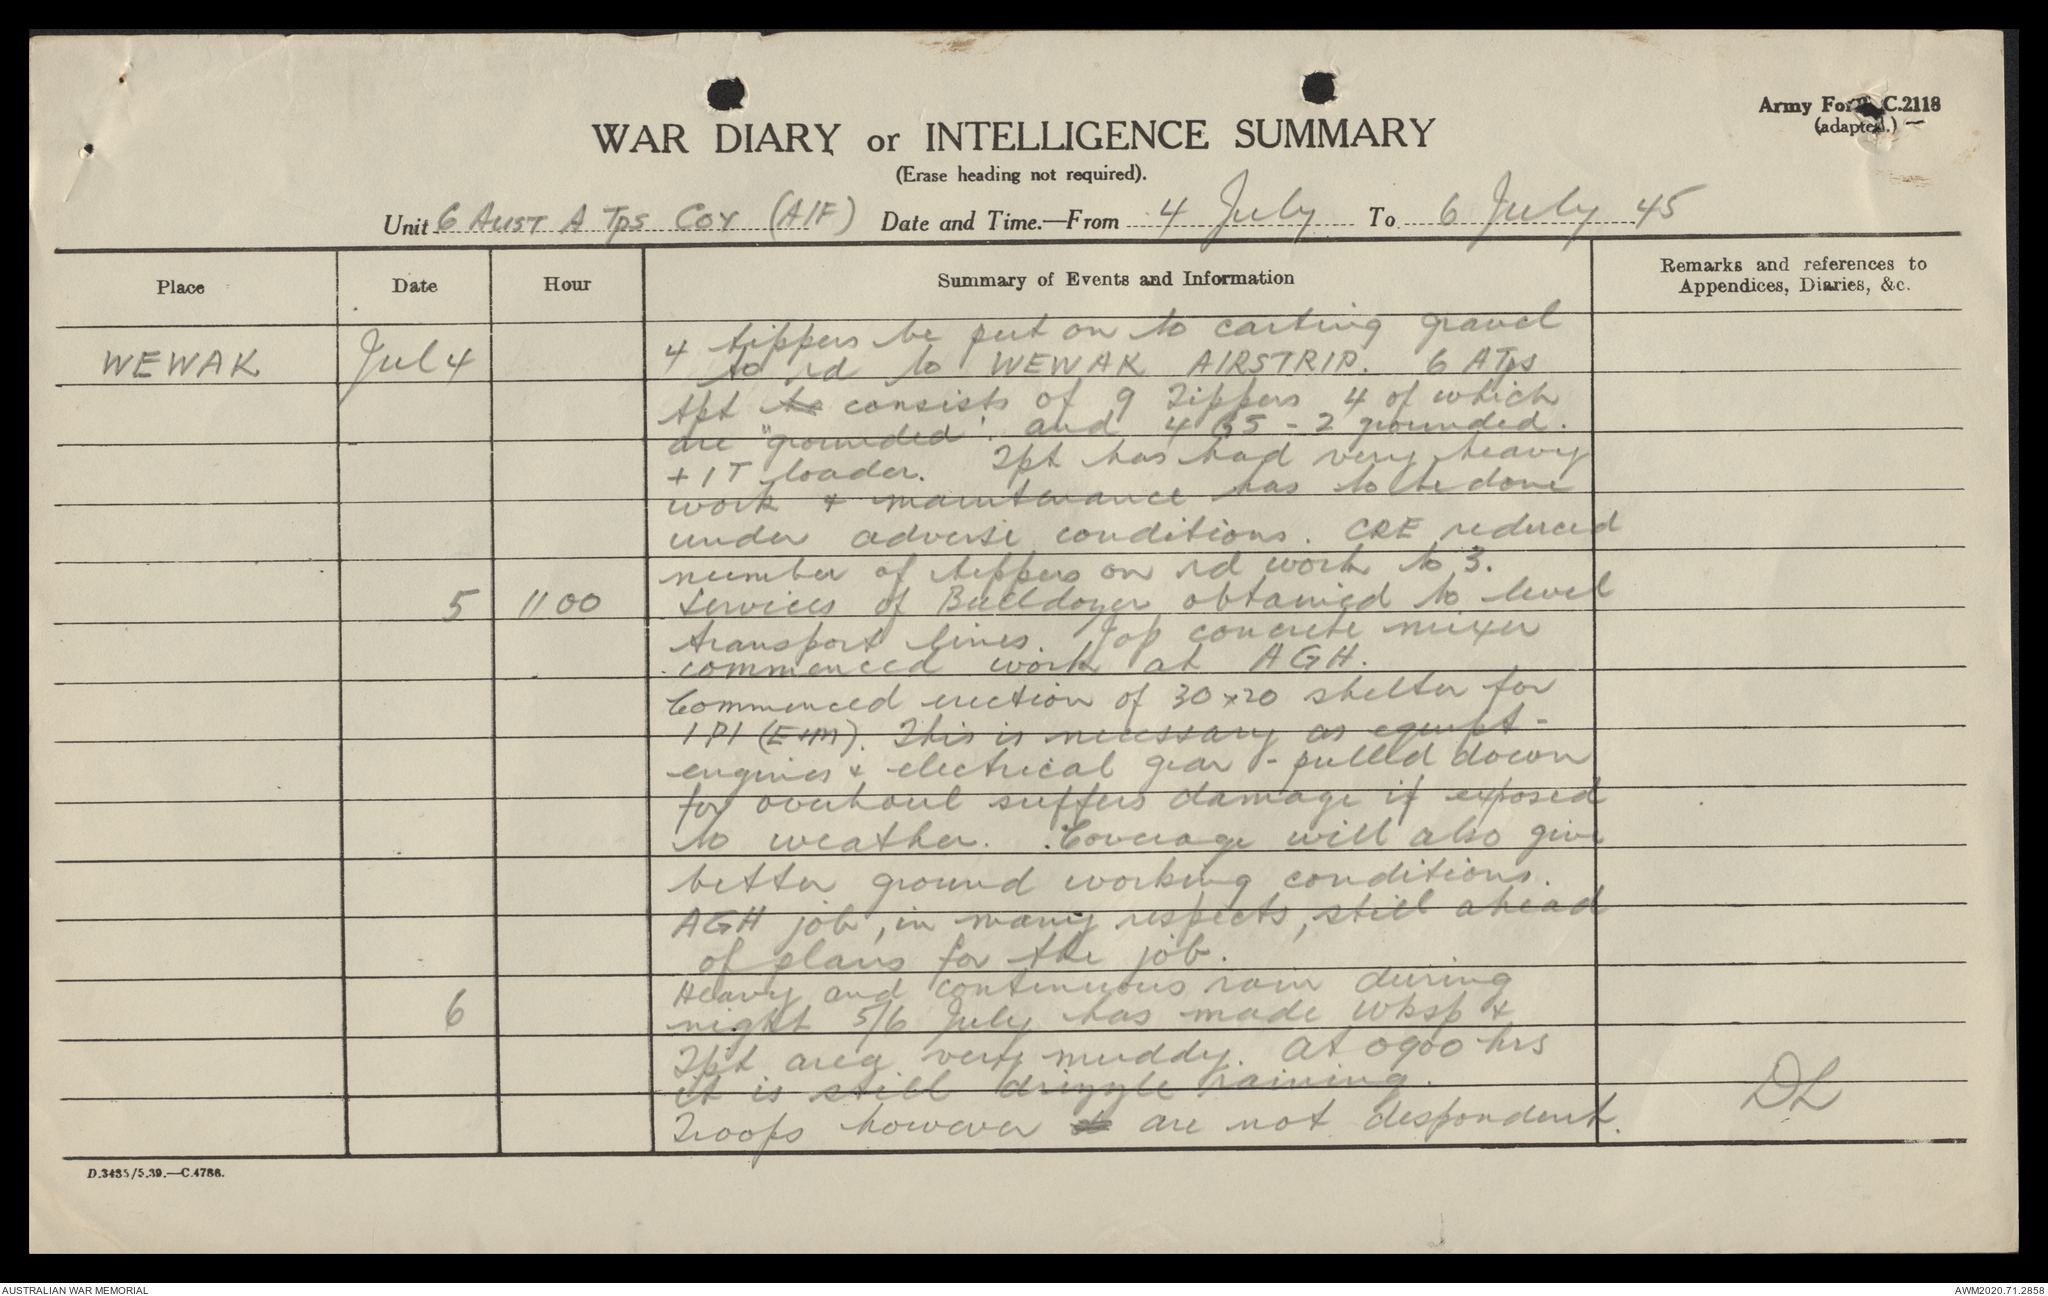 Army Form C.2118
(adapted.)
WAR DIARY or INTELLIGENCE SUMMARY
(Erase heading not required).
Unit 6 AUST A Tps COY (AIF) Date and Time.—From 4 July To 6 July 45
Place Date Hour Summary of Events and Information Remarks and references to
Appendices, Diaries, &c.
4 tippers be put on to carting gravel
WEWAK Jul 4 to rd to WEWAK AIRSTRIP. 6 ATps
tpt to consists of 9 Tippers 4 of which
are "grounded". and 4 G5 - 2 grounded.
+ 1 T loader. Tpt has had very heavy
work & maintenance has to be done
under adverse conditions. CRE reduced
number of tippers on rd work to 3.
5 1100 Services of Bulldozer obtained to level
transport lines. Jap concrete mixer
commenced work at AGH.
Commenced erection of 30x20 shelter for
1 Pl (E&M). This is necessary as equipt -
engines & electrical gear - pulled down
for overhaul suffers damage if exposed
to weather. Coverage will also give
better ground working conditions.
AGH job, in many respects, still ahead
of plans for the job.
Heavy and continuous rain during
6 night 5/6 July has made Wksp &
Tpt area very muddy. At 0900 hrs
it is still drizzle raining.
Troops however are not despondent. DL
D.3435/5.39.—C.4786.
AUSTRALIAN WAR MEMORIAL AWM2020.71.2858